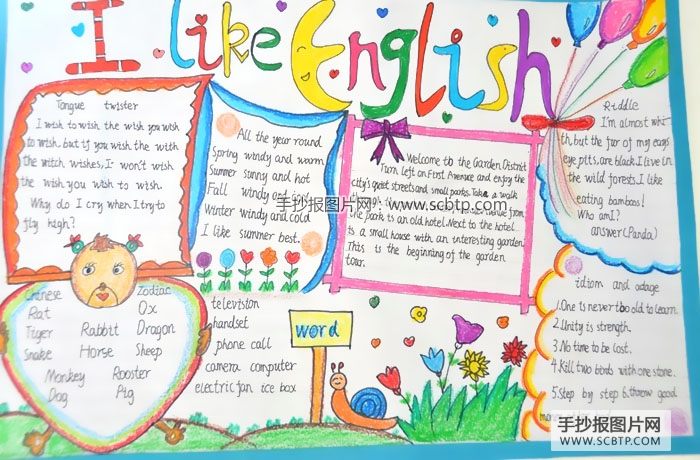 I like English
Tongue twister
I wish to wish the wish you wish
to wish. but if you wish the with
the witch wishes, I won't wish
the wish you wish to wish.
Why do I cry when I try to
fly high?
All the year round
Spring windy and worm
Summer sunny and hot
Fall windy and
Winter windy and cold
I like summer best.
Welcome to the Garden District
Turn left on First Avenue and enjoy the
city's quiet streets and small parks. Take a walk
from
the park is an old hotel. Next to the hotel
is a small house with an interesting garden.
This is the beginning of the garden
tour.
Riddle
I'm almost whi
th, but the fur of my eags
eye ptts, are black. I live in
the wild forests. I like
eating bamboos!
Who am I?
answer (Panda)
手抄报图片网：www.scbtp.com
Chinese Zodiac
Rat Ox
Tiger Rabbit Dragon
Snake Horse Sheep
Monkey Rooster
Dog Pig
television
handset
phone call
camera computer
electric fan ice box
word
idiom and adage
1.One is never too old to learn.
2.Unity is strength.
3.No time to be lost.
4.Kill two birds with one stone.
5.Step by step 6.throw good
手抄报图片网
WWW.SCBTP.COM